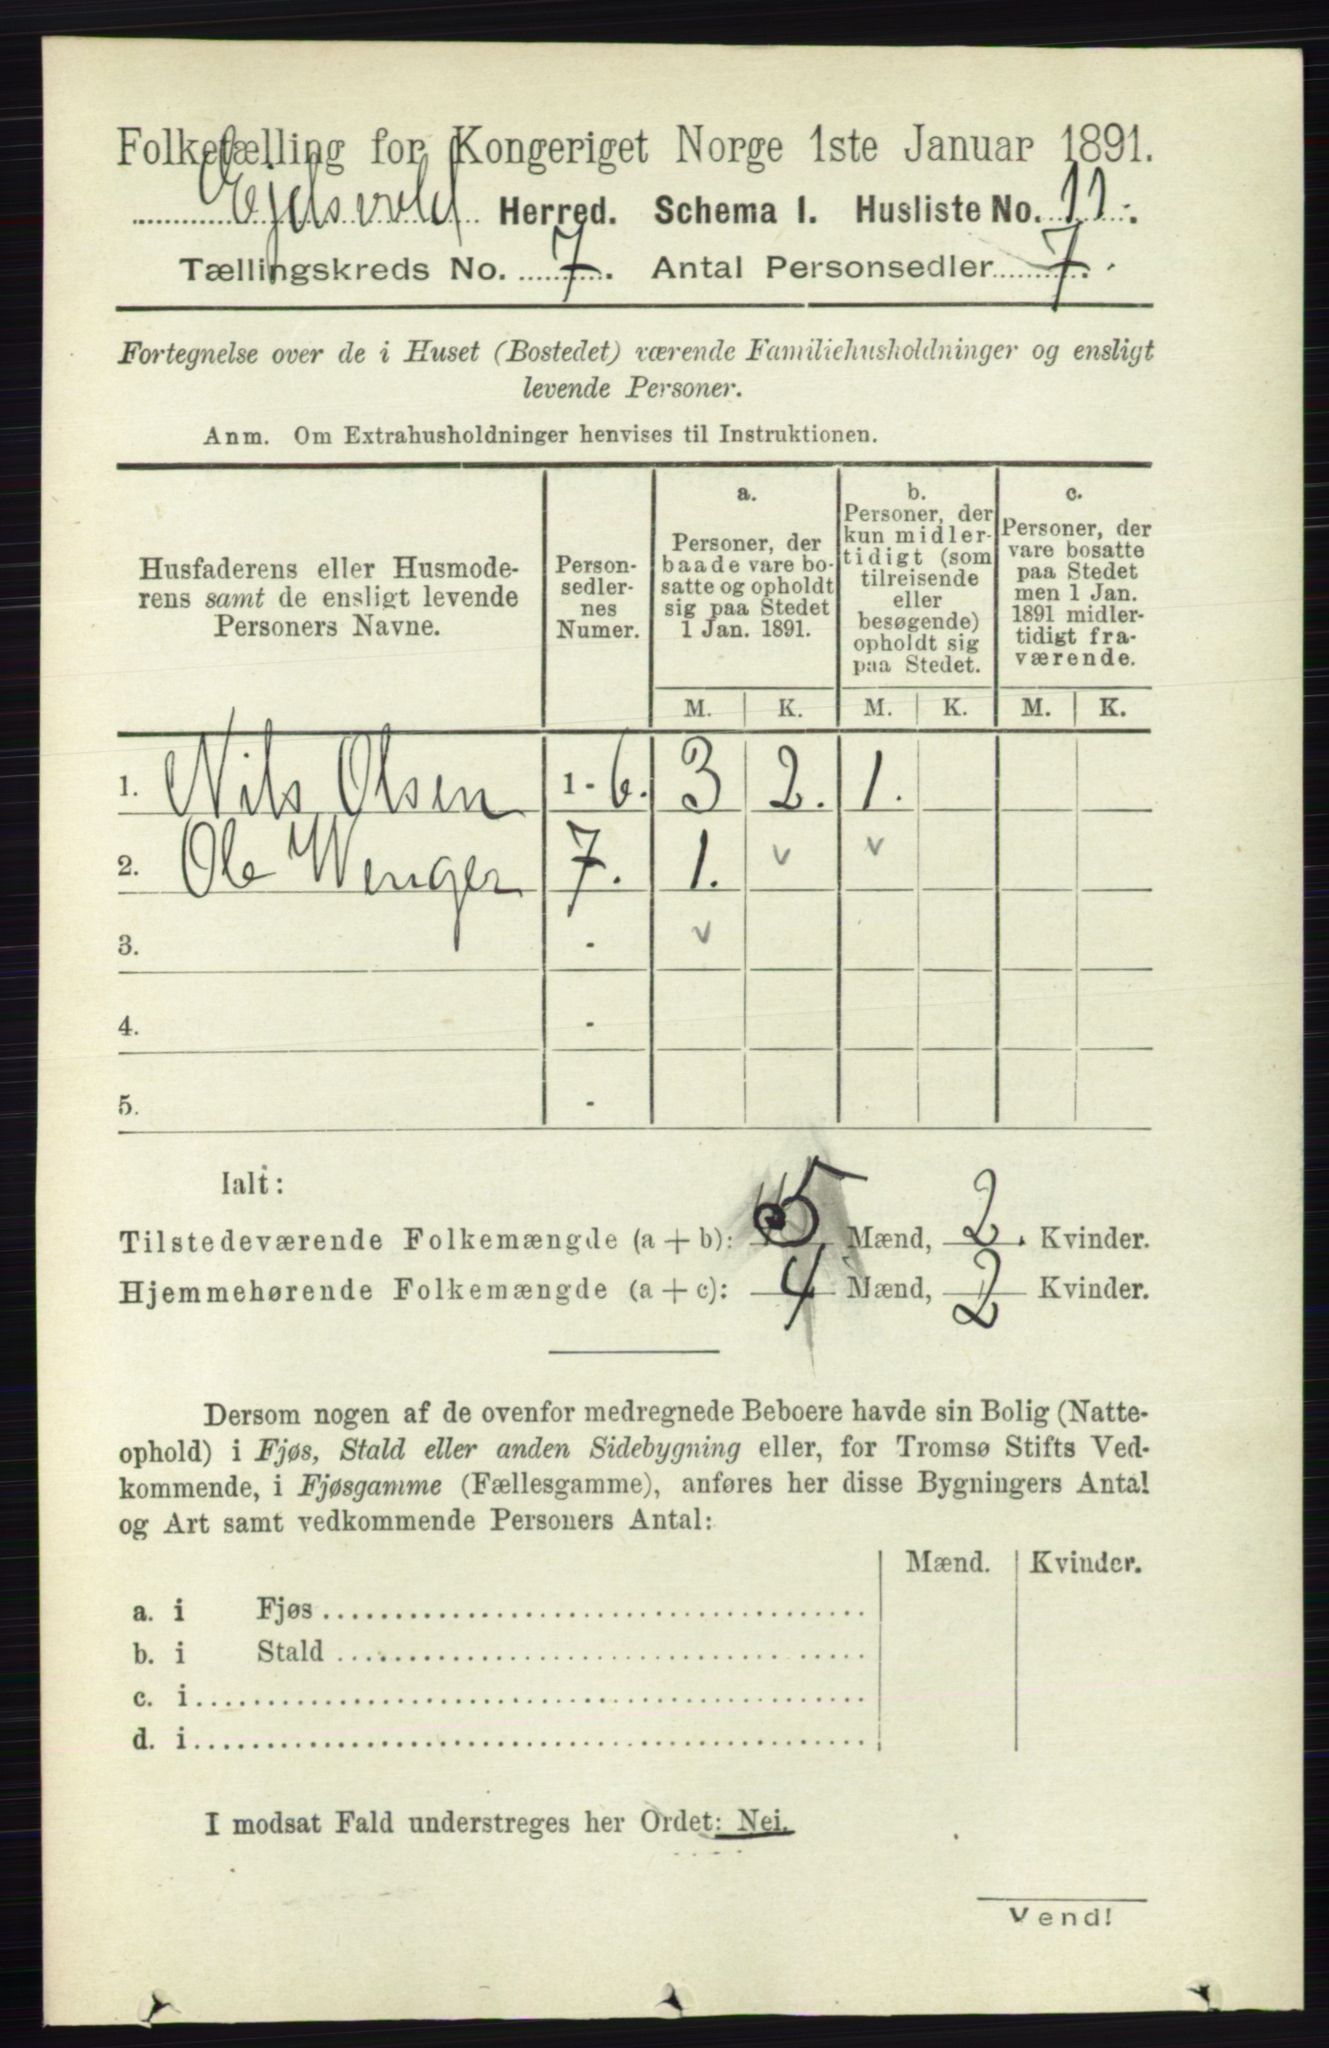 Folketælling for Kongeriget Norge 1ste Januar 1891.
Ejdsvold Herred. Schema I. Husliste No. 11.
Tællingskreds No. 7. Antal Personsedler 7.
Fortegnelse over de i Huset (Bostedet) værende Familiehusholdninger og ensligt
levende Personer.
Anm. Om Extrahusholdninger henvises til Instruktionen.
Husfaderens eller Husmode-
rens samt de ensligt levende
Personers Navne.
Person-
sedler-
nes
Numer.
a.
Personer, der
baade vare bo-
satte og opholdt
sig paa Stedet
1 Jan. 1891.
b.
Personer, der
kun midler-
tidigt (som
tilreisende
eller
besøgende)
opholdt sig
paa Stedet.
c.
Personer, der
vare bosatte
paa Stedet
men 1 Jan.
1891 midler-
tidigt fra-
værende.
M. K. M. K. M. K.
1. Nils Olsen 1 - 6. 3 2. 1.
2. Ole Wenger 7. 1. v v
3. - v
4. -
5. -
Ialt:
Tilstedeværende Folkemængde (a + b): 5 Mænd, 2. Kvinder.
Hjemmehørende Folkemængde (a + c): 4 Mænd, 2 Kvinder.
Dersom nogen af de ovenfor medregnede Beboere havde sin Bolig (Natte-
ophold) i Fjøs, Stald eller anden Sidebygning eller, for Tromsø Stifts Ved-
kommende, i Fjøsgamme (Fællesgamme), anføres her disse Bygningers Antal
og Art samt vedkommende Personers Antal:
Mænd. Kvinder.
a. i Fjøs
b. i Stald
c. i
d. i
I modsat Fald understreges her Ordet: Nei.
Vend!